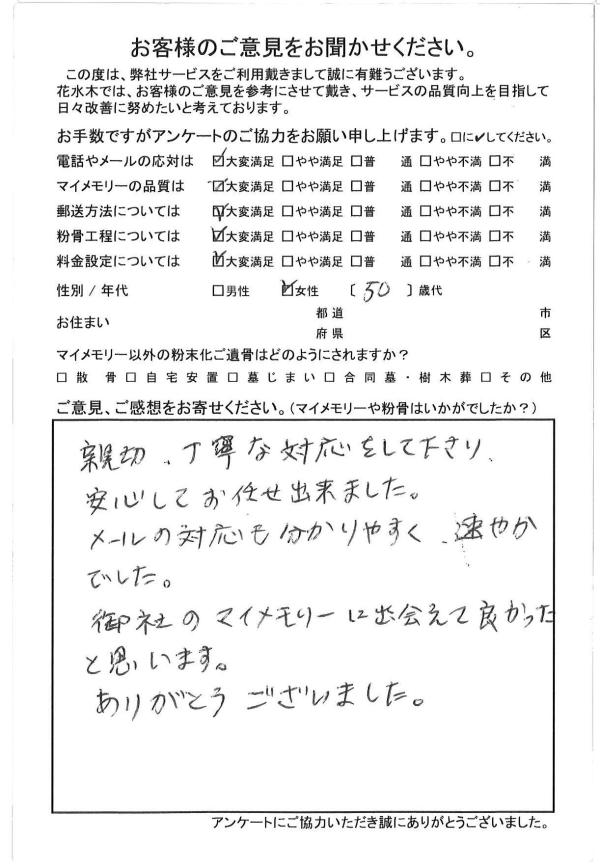 お客様のご意見をお聞かせください。
この度は、弊社サービスをご利用戴きまして誠に有難うございます。
花水木では、お客様のご意見を参考にさせて戴き、サービスの品質向上を目指して
日々改善に努めたいと考えております。
お手数ですがアンケートのご協力をお願い申し上げます。□に✔してください。
電話やメールの応対は ☑大変満足 □やや満足 □普 通 □やや不満 □不 満
マイメモリーの品質は ☑大変満足 □やや満足 □普 通 □やや不満 □不 満
郵送方法については ☑大変満足 □やや満足 □普 通 □やや不満 □不 満
粉骨工程については ☑大変満足 □やや満足 □普 通 □やや不満 □不 満
料金設定については ☑大変満足 □やや満足 □普 通 □やや不満 □不 満
性別 / 年代 □男性 ☑女性 〔 50 〕歳代
お住まい 都道 府県 市 区
マイメモリー以外の粉末化ご遺骨はどのようにされますか？
□散 骨 □自宅安置 □墓じまい □合同墓・樹木葬 □その他
ご意見、ご感想をお寄せください。(マイメモリーや粉骨はいかがでしたか？)
親切、丁寧な対応をして下さり、
安心してお任せ出来ました。
メールの対応も分かりやすく、速やか
でした。
御社のマイメモリーに出会えて良かった
と思います。
ありがとうございました。
アンケートにご協力いただき誠にありがとうございました。